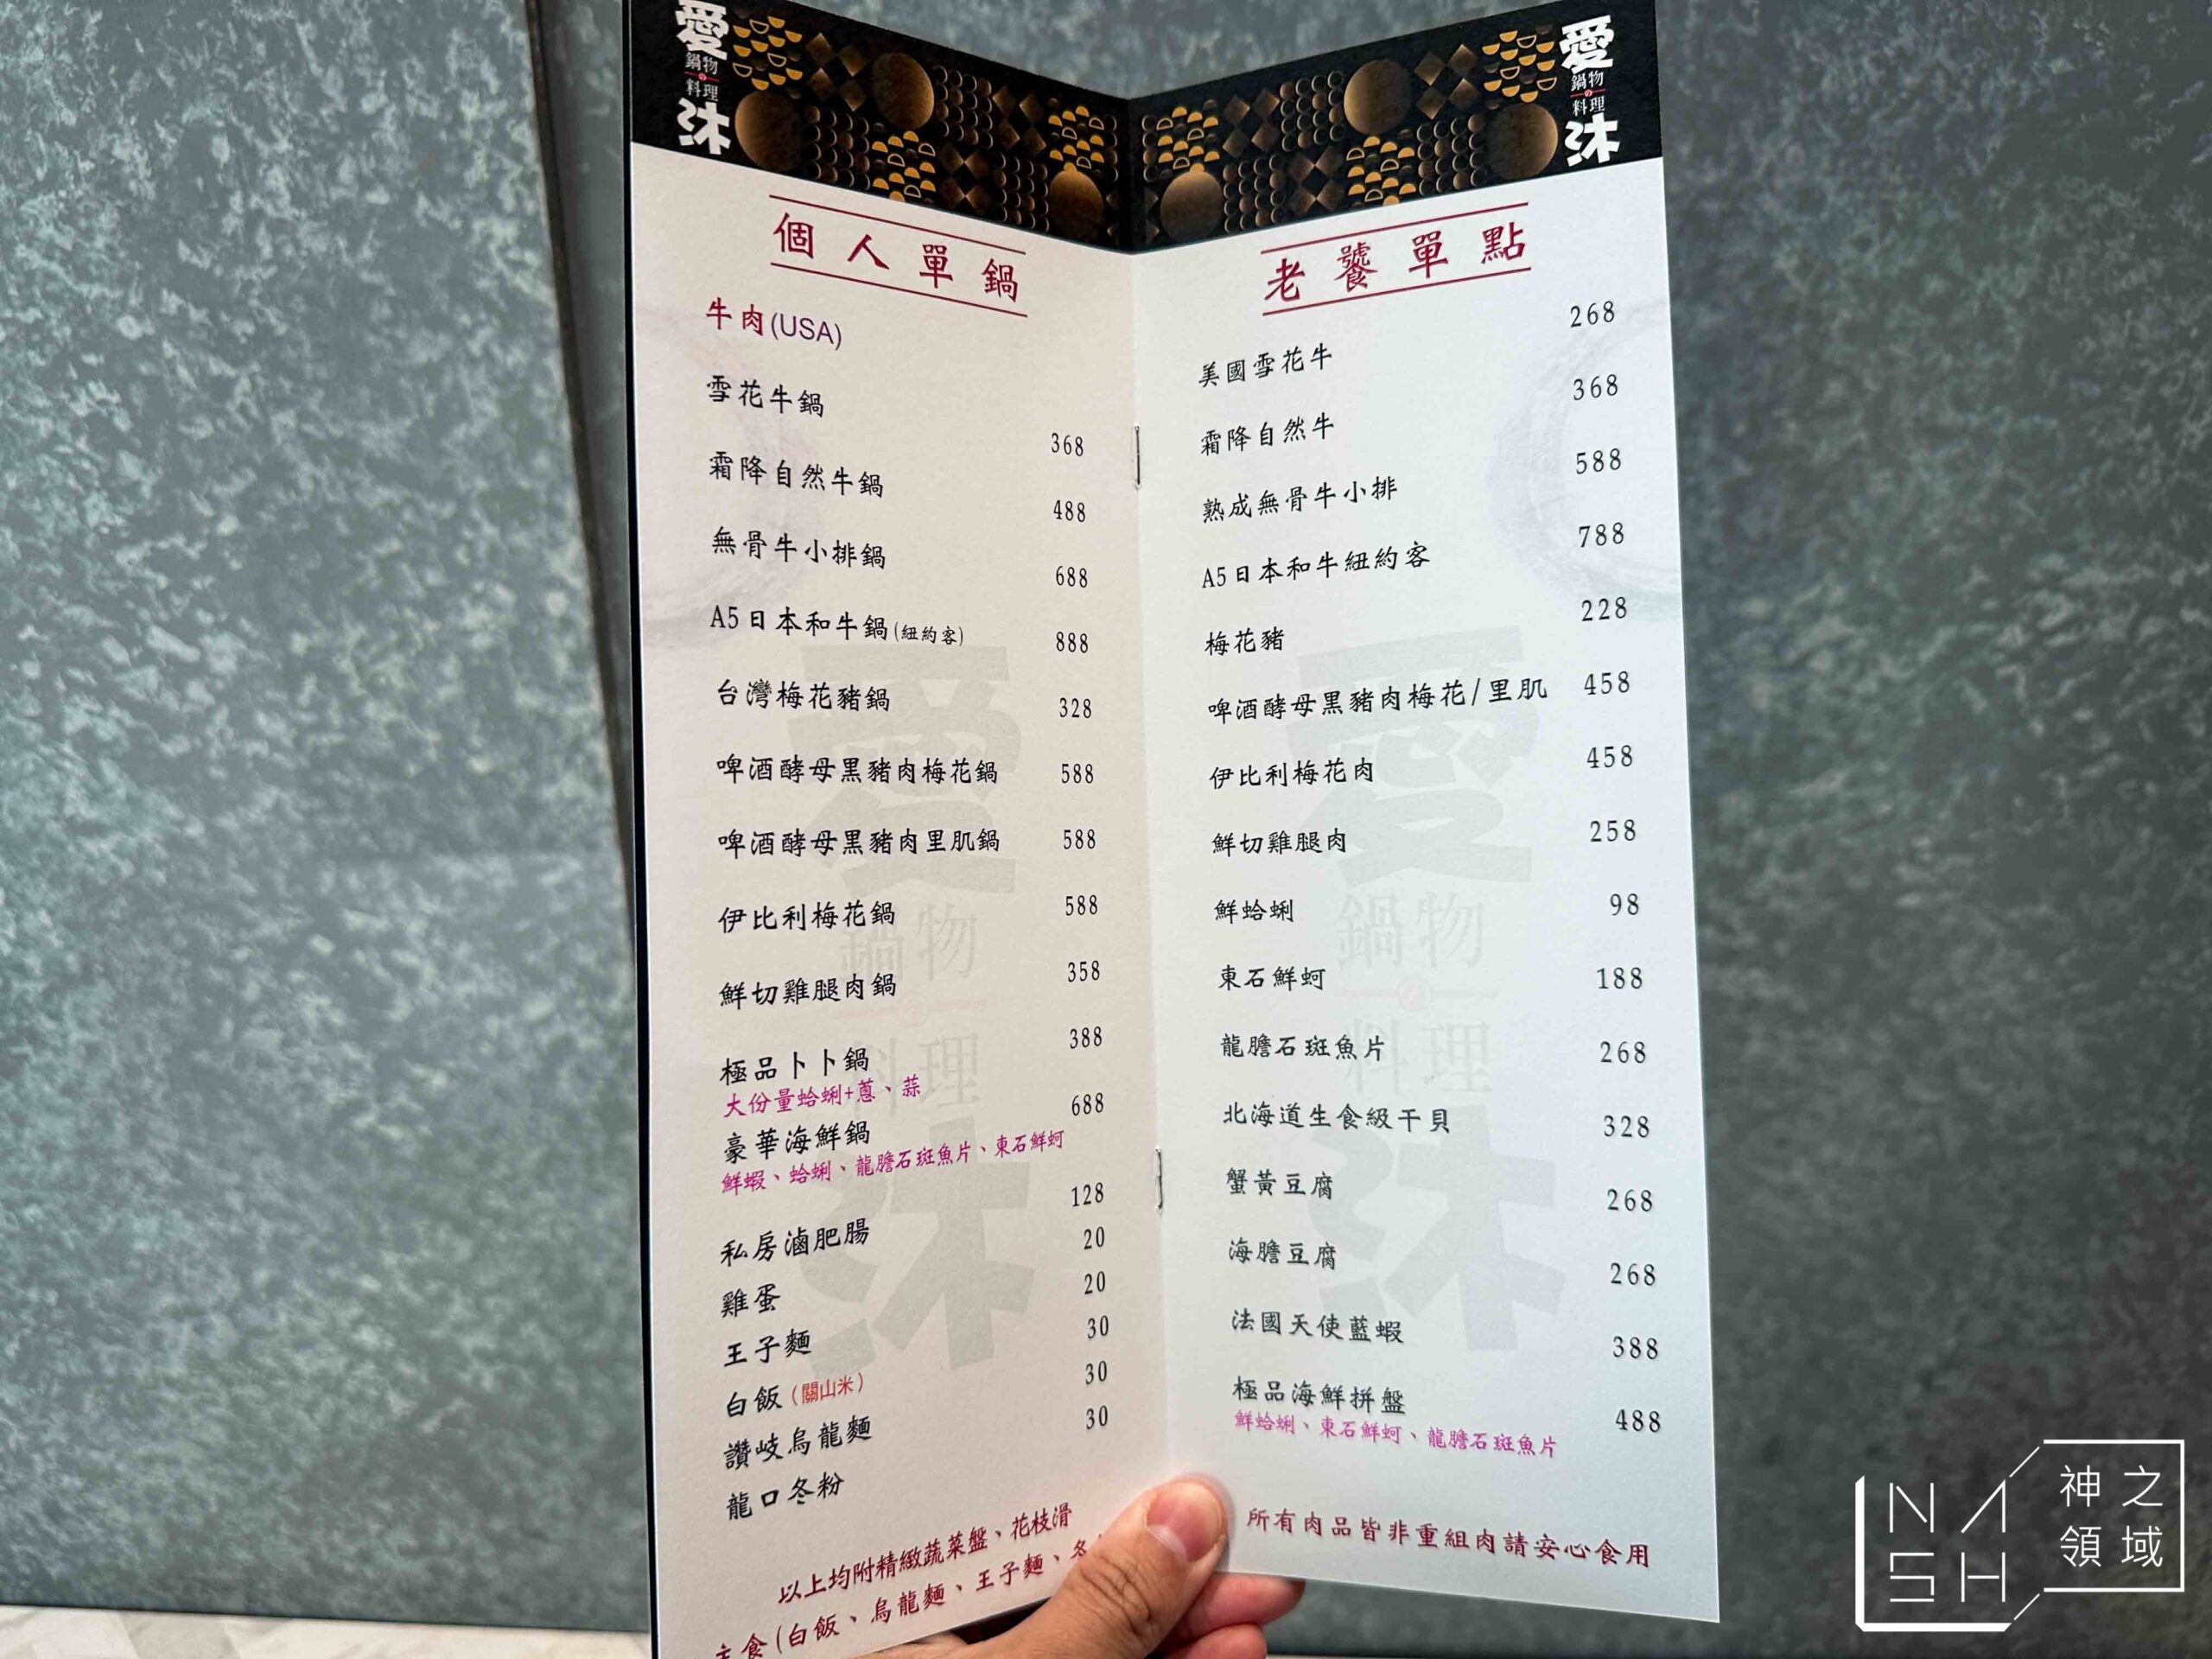 愛
鍋物
の
料理
沐
個人單鍋
牛肉(USA)
雪花牛鍋 368
霜降自然牛鍋 488
無骨牛小排鍋 688
A5日本和牛鍋(紐約客) 888
台灣梅花豬鍋 328
啤酒酵母黑豬肉梅花鍋 588
啤酒酵母黑豬肉里肌鍋 588
伊比利梅花鍋 588
鮮切雞腿肉鍋 358
極品卜卜鍋 388
大份量蛤蜊+蔥、蒜
豪華海鮮鍋 688
鮮蝦、蛤蜊、龍膽石斑魚片、東石鮮蚵
私房滷肥腸 128
雞蛋 20
王子麵 20
白飯(關山米) 30
讚岐烏龍麵 30
龍口冬粉 30
以上均附精緻蔬菜盤、花枝滑
主食(白飯、烏龍麵、王子麵、冬
愛
鍋物
の
料理
沐
老饕單點
美國雪花牛 268
霜降自然牛 368
熟成無骨牛小排 588
A5日本和牛紐約客 788
梅花豬 228
啤酒酵母黑豬肉梅花/里肌 458
伊比利梅花肉 458
鮮切雞腿肉 258
鮮蛤蜊 98
東石鮮蚵 188
龍膽石斑魚片 268
北海道生食級干貝 328
蟹黃豆腐 268
海膽豆腐 268
法國天使藍蝦 388
極品海鮮拼盤 488
鮮蛤蜊、東石鮮蚵、龍膽石斑魚片
所有肉品皆非重組肉請安心食用
愛
鍋物
料理
沐
愛
鍋物
料理
沐
NASH
神之
領域